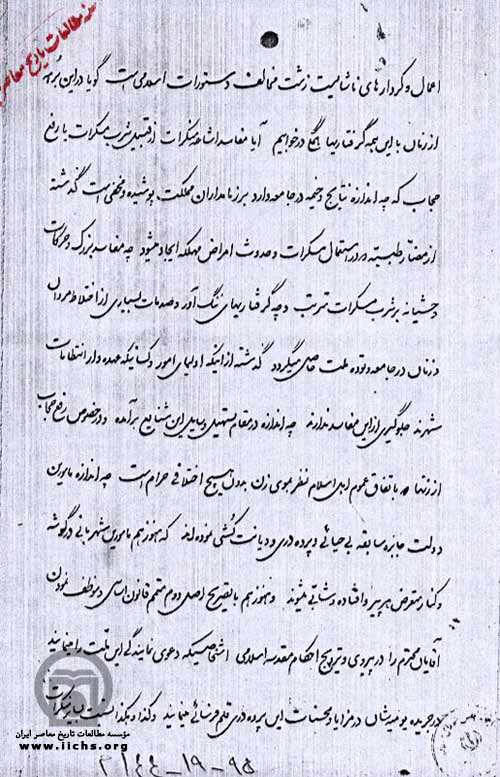 مطالعات تاریخ معاصر
اعمال و کردارهای ناشایست زشت مخالف دستورات اسلامی است گویا در این
از زنان با این همه گرفتاریها بکلی در خوابیم آیا مفاسد اشاعه منکرات از قبیل شرب مسکرات یا رفع
حجاب که چه اندازه نتایج وخیمه در جامعه دارد بر زمامداران مملکت پوشیده و مخفی است گذشته
از مضار طبیه در استعمال مسکرات و حدوث امراض مهلکه ایجاد میشود چه مفاسد بزرگ و حرکات
وحشیانه بر شرب مسکرات مترتب و چه گرفتاریهای ننگ آور و صدمات بسیاری از اختلاط مردان
و زنان در جامعه و توده ملت حاصل میگردد گذشته از اینکه اولیای امور و کسانیکه عهده دار انتظامات
شهرند جلوگیری از این مفاسد ندارند چه اندازه در مقام تسهیل وسایل این شنایع برآمده و در خصوص رفع حجاب
از زنها که باتفاق عموم اهل اسلام نظر بموی زن بدون هیچ اختلافی حرام است چه اندازه مامورین
دولت جابره سابقه بی حیائی و پرده دری و دیانت کشی نموده اند که هنوز هم مامورین شهربانی در گوشه
و کنار متعرض هر پیر و افتاده و شأنی میشوند و هنوز هم با تصریح اصل دوم متمم قانون اساسی و موظف نمودن
آقایان محترم را در پیروی و ترویج احکام مقدسه اسلامی اشخاصیکه دعوی نمایندگی این ملت را مینمایند
در جریده یومیه شان در مزایا و محسنات این پرده دری قلم فرسائی مینمایند و کذا و کذا نسبت بسایر منکرات
مؤسسه مطالعات تاریخ معاصر ایران
www.iichs.org
۲۱۴۴-۱۹-۹۵